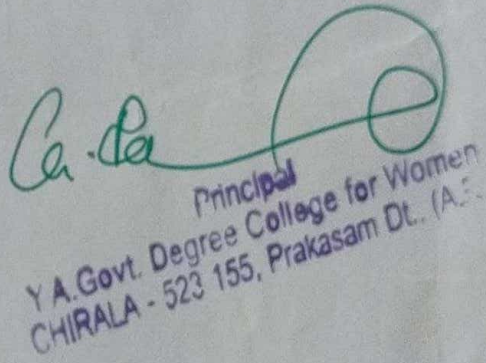 Principal
Y A.Govt. Degree College for Women
CHIRALA - 523 155, Prakasam Dt., (A.P.